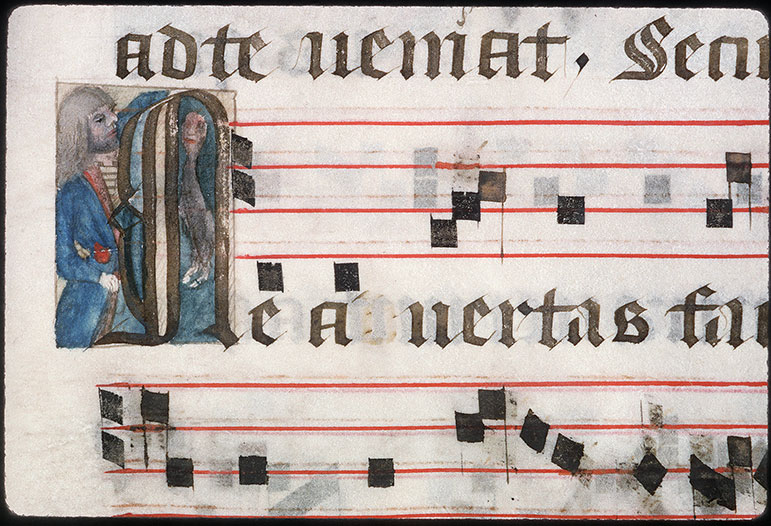 ad te ueniat. Secu
Ne auertas fac